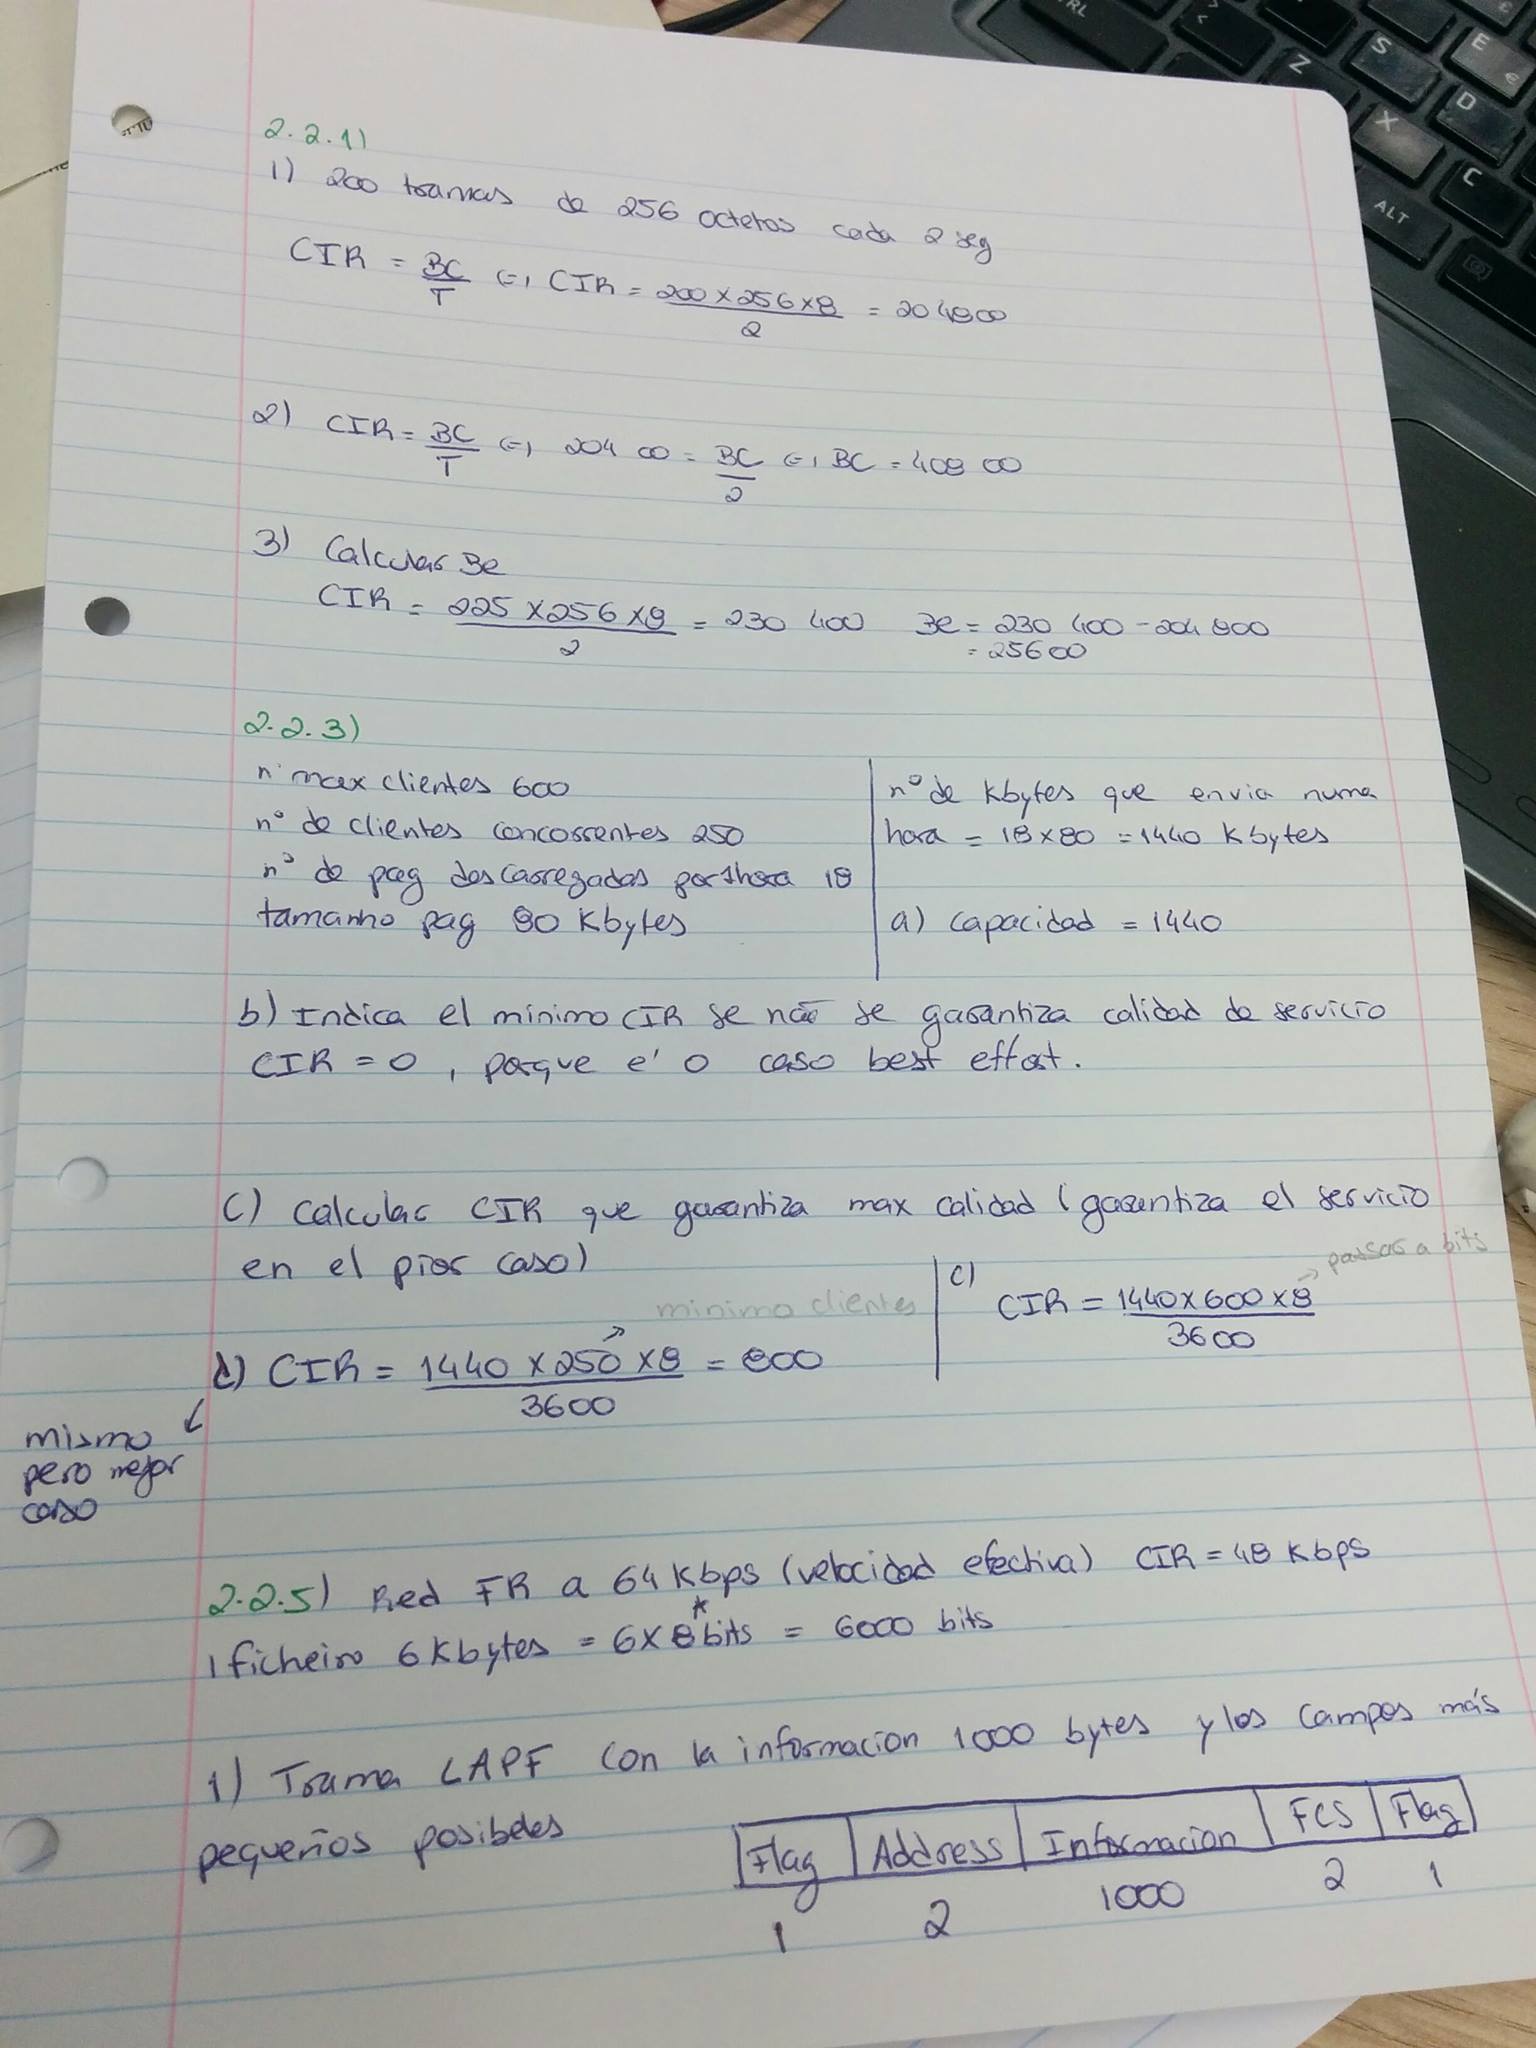 2.2.1)
1) 200 tramas de 256 octetos cada 2 seg
CIR = BC/T (=) CIR = 200 x 256 x 8 / 2 = 204800
2) CIR = BC/T (=) 204 00 = BC/2 (=) BC = 408 00
3) Calcular Be
CIR = 225 x 256 x 8 / 2 = 230 400 Be = 230 400 - 204 800
= 25600
2.2.3)
nº max clientes 600
nº de clientes concorrentes 250
nº de pag descarregadas por 1 hora 18
tamanho pag 80 Kbytes
nº de Kbytes que envia numa
hora = 18 x 80 = 1440 Kbytes
a) capacidad = 1440
b) Indica el minimo CIR se não se garantiza calidad de servicio
CIR = 0, porque é o caso best effort.
c) Calcular CIR que garantiza max calidad (garantiza el servicio
en el pior caso)
c) CIR = 1440 x 600 x 8 / 3600 → passar a bits
minimo clientes
d) CIR = 1440 x 250 x 8 / 3600 = 800
mismo
pero mejor
caso
2.2.5) Red FR a 64 Kbps (velocidad efectiva) CIR = 48 Kbps
1 ficheiro 6 Kbytes = 6 x 8 bits * = 6000 bits
1) Trama LAPF con la informacion 1000 bytes y los campos más
pequeños posibeles
Flag Address Informacion FCS Flag
1 2 1000 2 1
E
S
D
Z
X
C
ALT